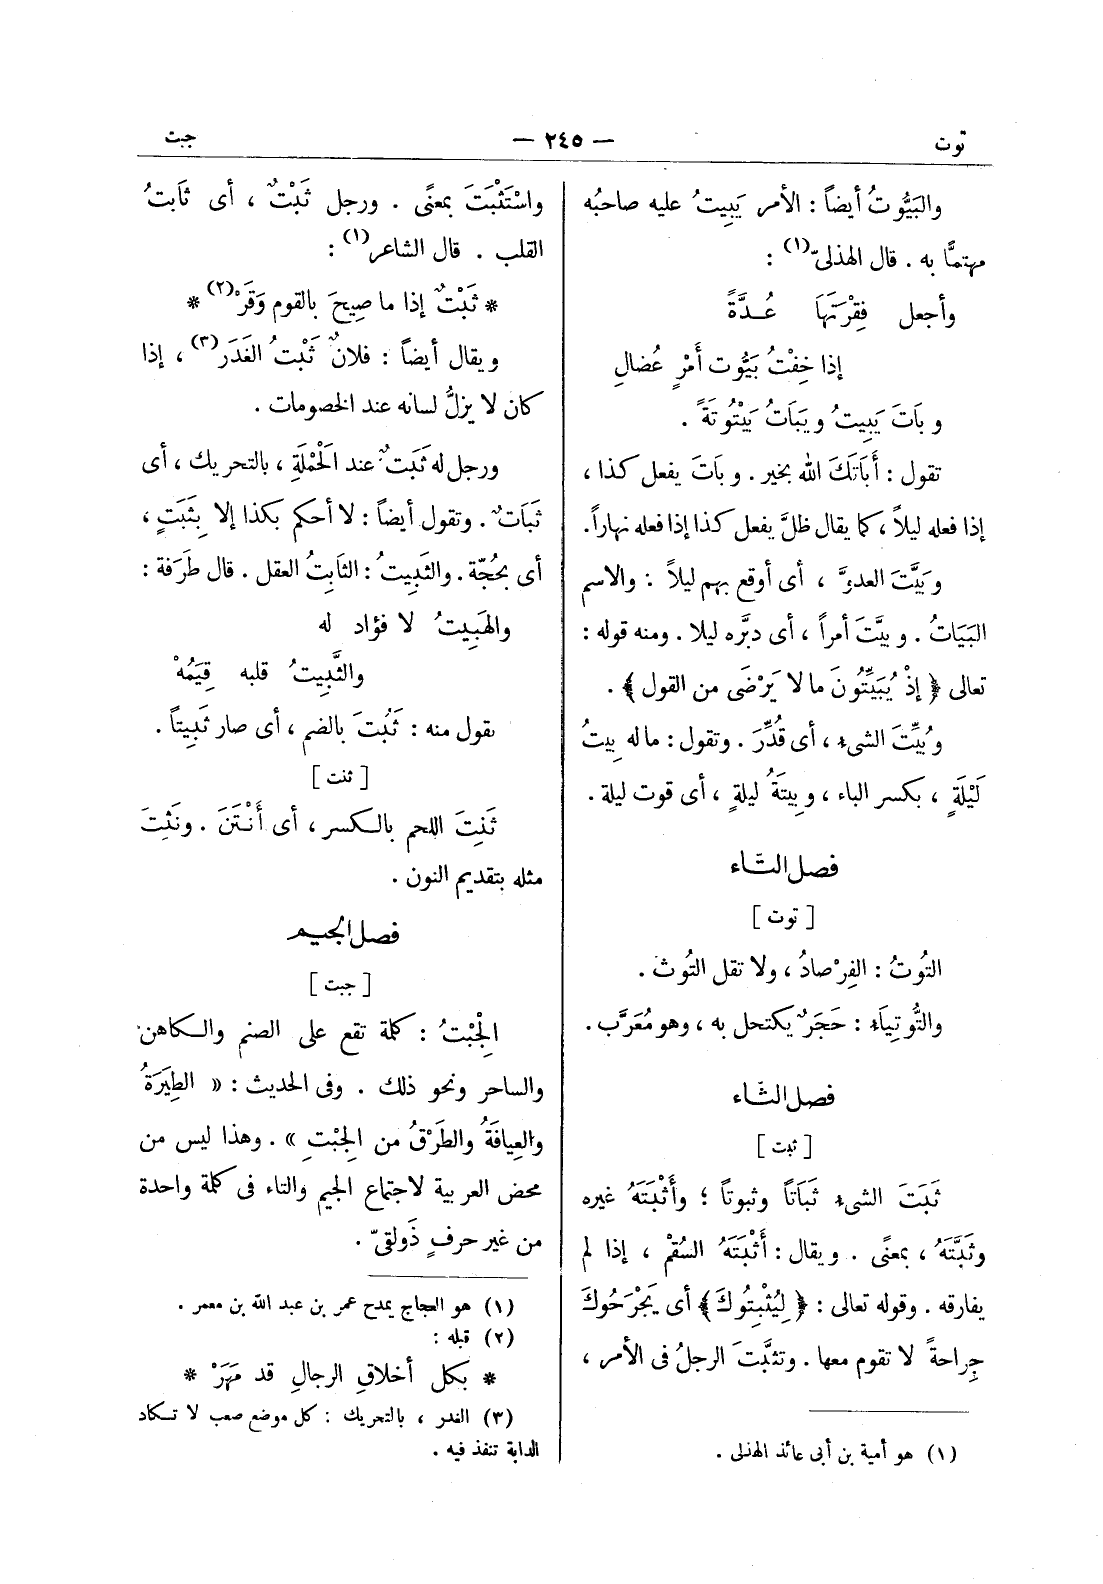 توت
— ٢٤٥ —
جبت
والبَيُّوتُ أيضاً : الأمر يَبِيتُ عليه صاحبُه
مهتمًّا به . قال الهذلىّ(١) :
وأجعل فِقْرَتَهَا عُــدَّةً
إذا خِفْتُ بَيُّوت أَمْرٍ عُضالِ
وبَاتَ يَبِيتُ ويَبَاتُ بَيْتُوتَةً .
تقول : أَبَاتَكَ الله بخير . وبَاتَ يفعل كذا ،
إذا فعله ليلاً ، كما يقال ظلَّ يفعل كذا إذا فعله نهاراً.
وبَيَّتَ العدوَّ ، أى أوقع بهم ليلاً : والاسم
البَيَاتُ . وبيَّتَ أمراً ، أى دبَّره ليلا . ومنه قوله :
تعالى ﴿ إذْ يُبَيِّتُونَ ما لا يَرْضَى من القول ﴾ .
وبُيِّتَ الشىء ، أى قُدِّرَ . وتقول : ما له بِيتُ
لَيْلَةٍ ، بكسر الباء ، وبِيتَةُ ليلةٍ ، أى قوت ليلة .
فصل التّاء
[ توت ]
التُوتُ : الفِرْصادُ ، ولا تقل التُوث .
والتُّوتِيَاء : حَجَرٌ يكتحل به ، وهو مُعَرَّب .
فصل الثّاء
[ ثبت ]
ثَبَتَ الشىء ثَبَاتاً وثبوتاً ؛ وأَثْبَتَهُ غيره
وثَبَّتَهُ ، بمعنًى . ويقال : أَثْبَتَهُ السُقْم ، إذا لم
يفارقه . وقوله تعالى : ﴿ لِيُثْبِتُوكَ ﴾ أى يَجْرَحُوكَ
جِراحةً لا تقوم معها . وتثبَّتَ الرجلُ فى الأمر ،
(١) هو أمية بن أبى عائذ الهذلى .
واسْتَثْبَتَ بمعنًى . ورجل ثَبْتٌ ، أى ثَابتُ
القلب . قال الشاعر(١) :
* ثَبْتٌ إذا ما صِيحَ بالقوم وَقَرْ(٢) *
ويقال أيضاً : فلانٌ ثَبْتُ الغَدَر(٣) ، إذا
كان لا يزلُّ لسانه عند الخصومات .
ورجل له ثَبَتٌ عند الحَمْلَةِ ، بالتحريك ، أى
ثَبَاتٌ . وتقول أيضاً : لا أحكم بكذا إلا بِثَبَتٍ ،
أى بحُجّة . والثَبِيتُ : الثابِتُ العقل . قال طَرَفة :
والهَبِيتُ لا فؤاد له
والثَّبِيتُ قلبه قِيَمُهْ
نقول منه : ثَبُتَ بالضم ، أى صار ثَبِيتاً .
[ ثنت ]
ثَنِتَ اللحم بالـكسر ، أى أَنْـتَنَ . ونَثِتَ
مثله بتقديم النون .
فصل الجيـم
[ جبت ]
الجِبْتُ : كلمة تقع على الصنم والـكاهن
والساحر ونحو ذلك . وفى الحديث : « الطِيَرَةُ
والعِيافَةُ والطَرْقُ من الجِبْتِ » . وهذا ليس من
محض العربية لاجتماع الجيم والتاء فى كلمة واحدة
من غير حرفٍ ذَولقىّ .
(١) هو العجاج يمدح عمر بن عبد الله بن معمر .
(٢) قبله :
* بكل أخلاقِ الرجالِ قد مَهَرْ *
(٣) الغدر ، بالتحريك : كل موضع صعب لا تـكاد
الدابة تنفذ فيه .